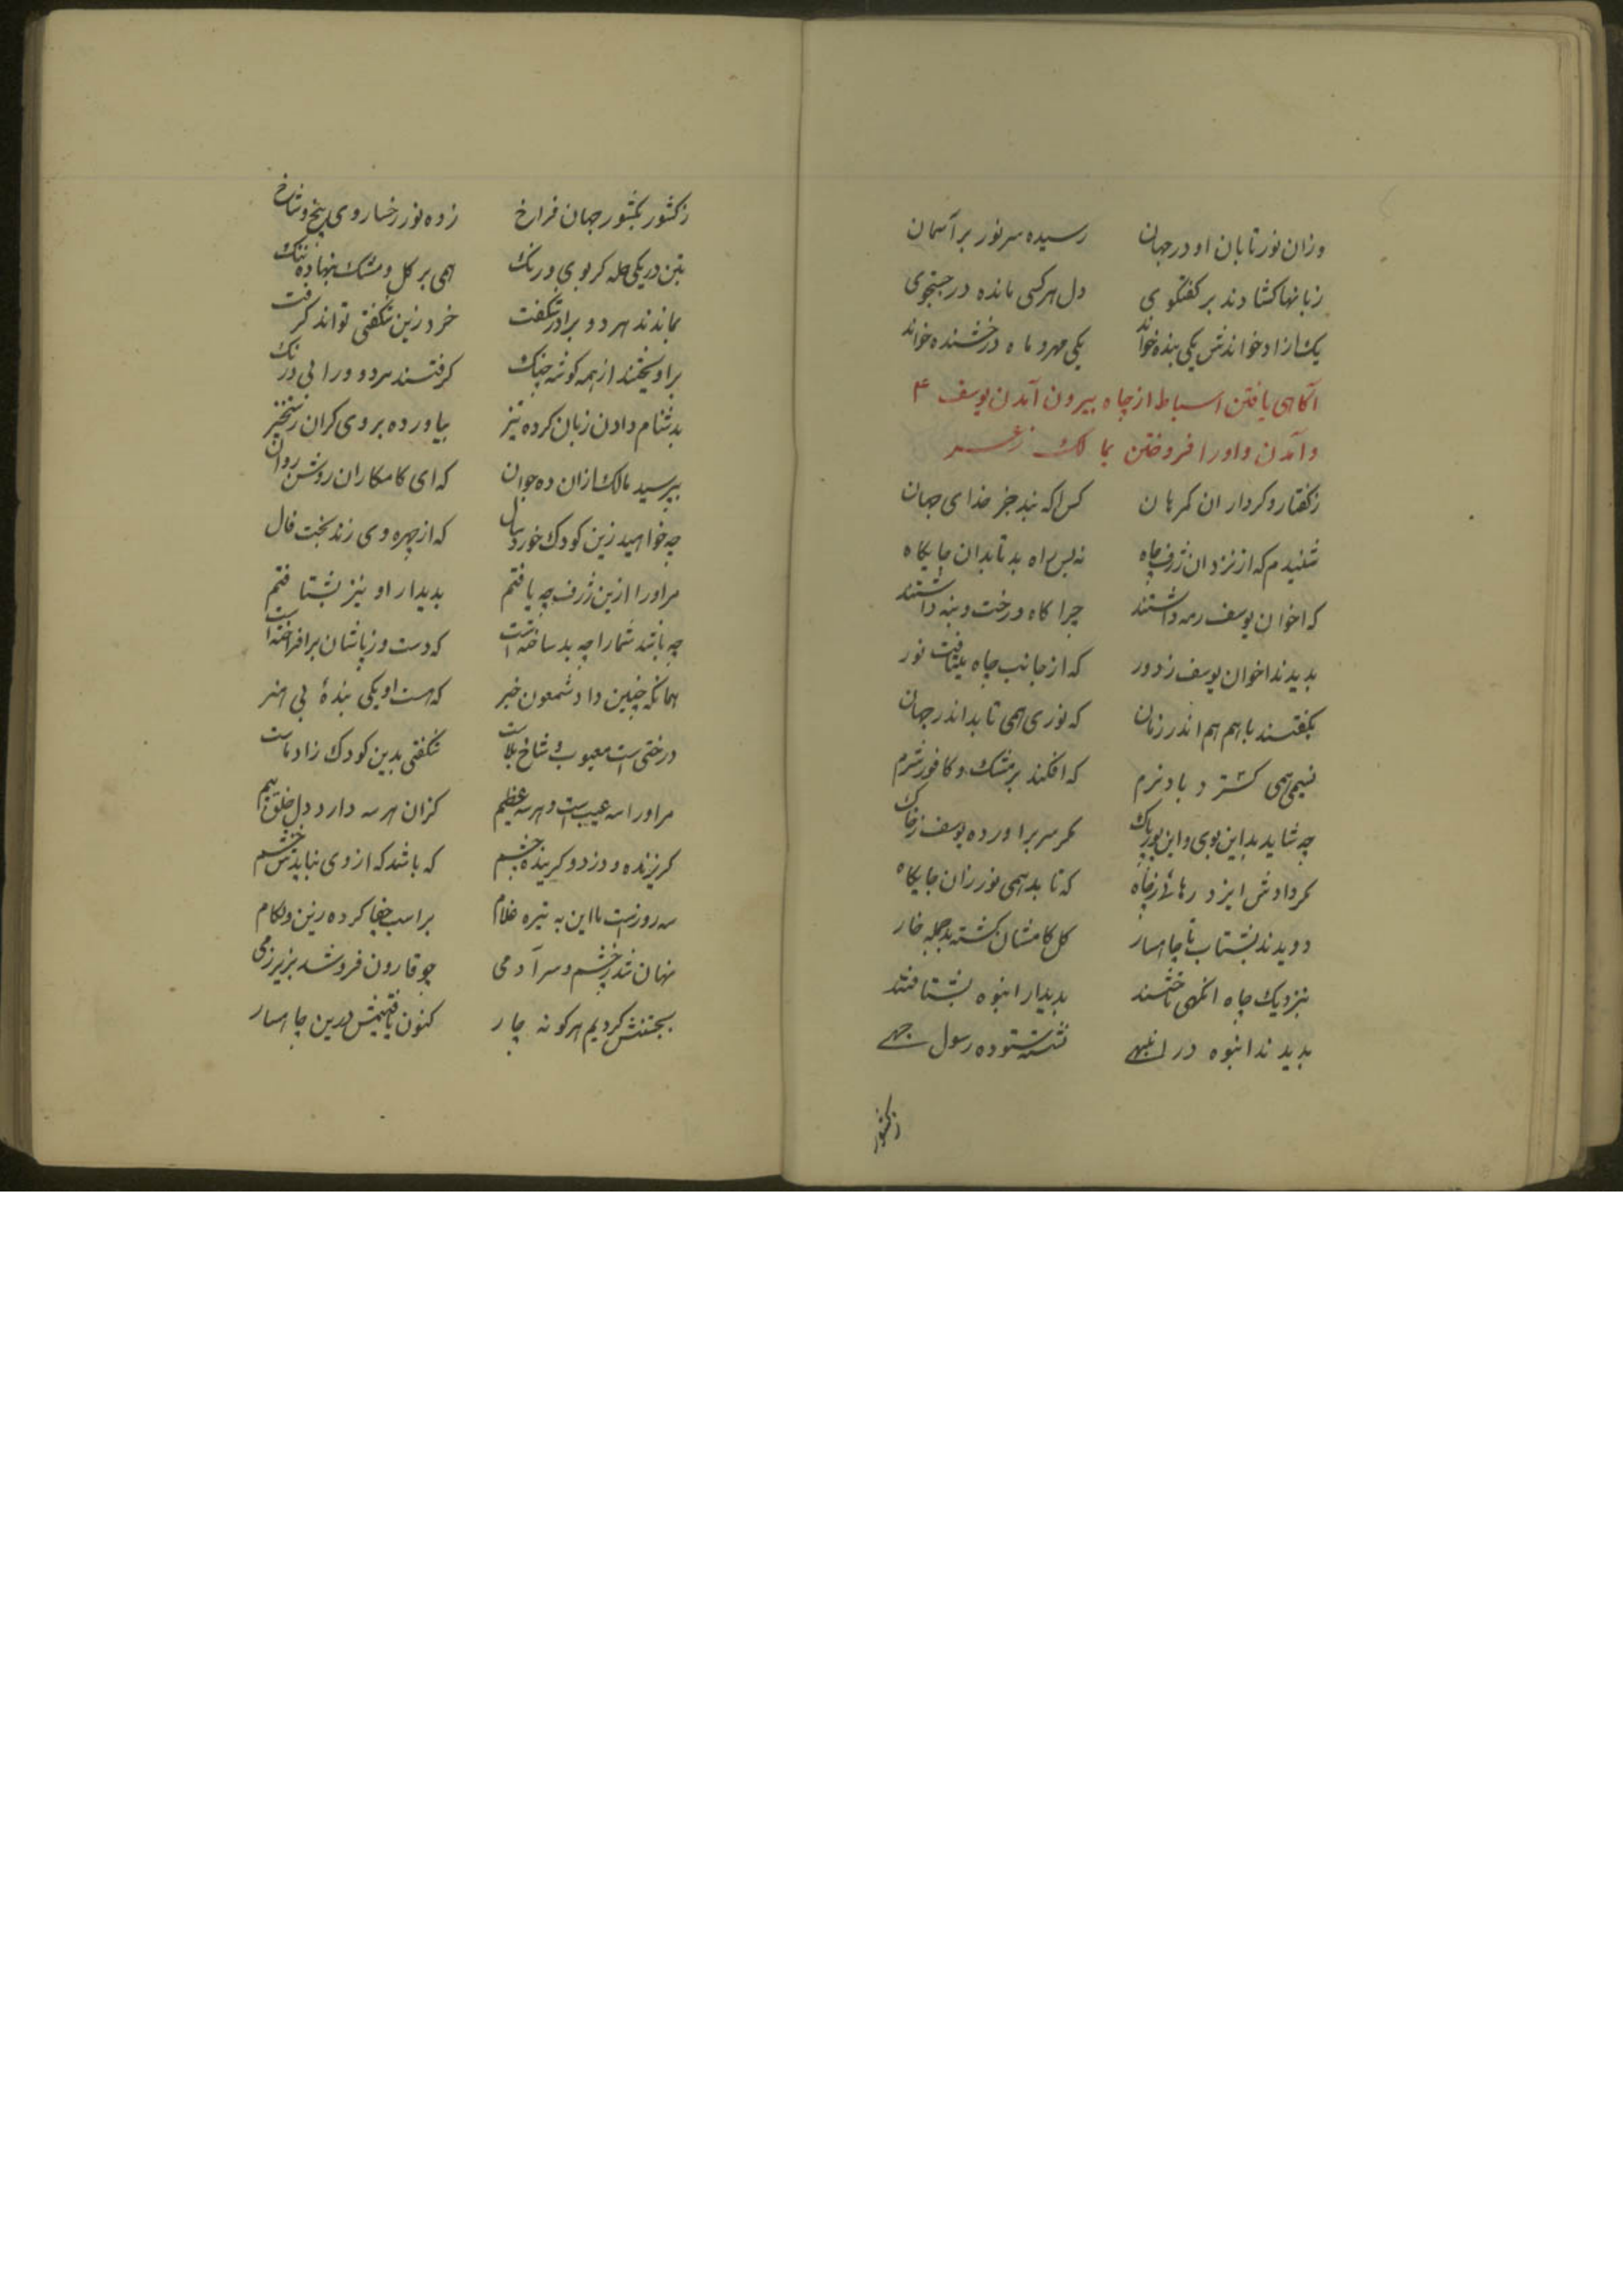 وزان نور تابان او در جهان رسیده سر نور بر آسمان
زبانها کشادند بر کفتکوی دل هر کسی مانده در جستجوی
یک ازاد خواندش یکی بنده خواند یکی مهر و ماه درخشنده خواند
آکاهی یافتن اسباط از چاه بیرون آمدن یوسف ۴
و آمدن و او را فروختن بمالک زعر
ز کفتار و کردار ان کمرهان کس اکه نبد جز خدای جهان
شنیدم که از نزد ان ژرف چاه نه بس راه بد تا بدان جایکاه
که اخوان یوسف رمه داشتند چرا کاه و رخت و بنه داشتند
بدیدند اخوان یوسف ز دور که از جانب چاه میتافت نور
بکفتند با هم هم اندر زمان که نوری همی تابد اندر جهان
نسیمی همی کسترد باد نرم که افکند بر مشک و کافور شرم
چه شاید بد این بوی و این نور پاک مکر سر براورده یوسف ز خاک
مکر دادش ایزد رهائی ز چاه که تابد همی نور زان جایکاه
دویدند بشتاب تا چاهسار کل کامشان کشته بد جمله خار
بنزدیک چاه انکهی تاختند بدیدار انبوه بشتافتند
بدیدند انبوه در انبهی نشسته ستوده رسول جهی
زکشور
ز کشور بکشور جهان فراخ زده نور رخسار وی بیخ و شاخ
بتن در یکی حله کز بوی و رنک همی بر کل و مشک بنهاده ننک
بماندند هر دو برادر شکفت خرد زین شکفتی تواند کرفت
براویختند از همه کوشه جنک کرفتند مر دو ورا بی درنک
بدشنام دادن زبان کرده تیز بیاورده بر وی کران رستخیز
بپرسید مالک ازان ده جوان که ای کامکاران روشن روان
چه خواهید زین کودک خورد سال که از چهره وی زند بخت فال
مر او را ازین ژرف چه یافتم بدیدار او نیز بشتافتم
چه باشد شما را چه بد ساخته است که دست و زپاشان برافراخته است
همانکه چنین داد شمعون خبر که هست او یکی بندهٔ بی هنر
درختی است معیوب و شاخ بلاست شکفتی بدین کودک زاد ماست
مر او را سه عیب است و هر سه عظیم کزان هر سه دارد دل خلق بیم
کریزنده و دزد و کرینده چشم که باشد که از وی نیایدش خشم
سه روزست تا این به تیره غلام بر اسب جفا کرده زین و لکام
نهان شد ز چشم و سر آدمی چو قارون فرو شد بزیر زمی
بجستنش کردیم هر کونه چار کنون یافتیمش درین چاهسار